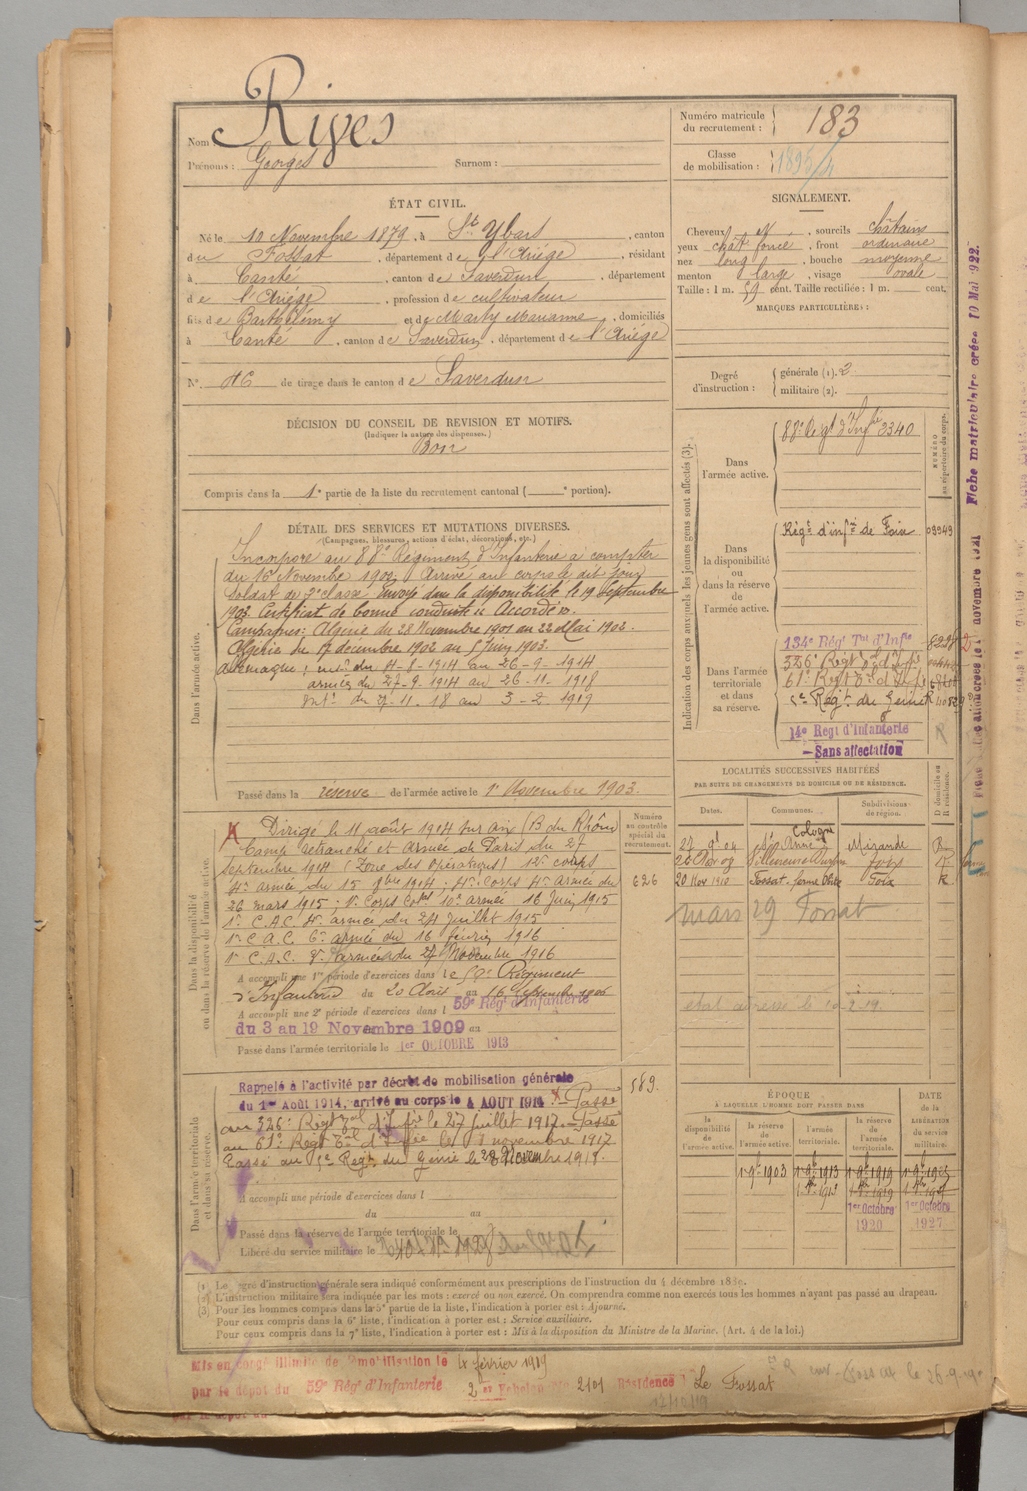 Nom Rives
Prénoms : Georges Surnom :
Numéro matricule du recrutement : 183
Classe de mobilisation : 189
ÉTAT CIVIL.
Né le 10 Novembre 1879, à St Ybars, canton
du Fossat, département de l'Ariége, résidant
à Canté, canton de Saverdun, département
de l'Ariége, profession de cultivateur
fils de Barthélémy et de Marty Marianne, domiciliés
à Canté, canton de Saverdun, département de l'Ariége
N° 46 de tirage dans le canton de Saverdun
SIGNALEMENT.
Cheveux, sourcils châtains
yeux chat. foncé, front ordinaire
nez long, bouche moyenne
menton large, visage ovale
Taille : 1 m. 59 cent. Taille rectifiée : 1 m. cent.
MARQUES PARTICULIÈRES :
Degré d'instruction : générale (1). 2
militaire (2).
DÉCISION DU CONSEIL DE REVISION ET MOTIFS.
(Indiquer la nature des dispenses.)
Bon
Compris dans la 1e partie de la liste du recrutement cantonal ( e portion).
DÉTAIL DES SERVICES ET MUTATIONS DIVERSES.
(Campagnes, blessures, actions d'éclat, décorations, etc.)
Dans l'armée active.
Incorporé au 88e Régiment d'Infanterie à compter
du 16 Novembre 1900. Arrivé au corps le dit jour
Soldat de 2e classe. Envoyé dans la disponibilité le 19 Septembre
1903. Certificat de bonne conduite "Accordé".
Campagnes : Algérie du 28 Novembre 1901 au 22 Mai 1902.
Algérie du 17 décembre 1902 au 5 Juin 1903.
Allemagne : intr du 4-8-1914 au 26-9-1914
armées du 27-9-1914 au 26-11-1918
intr du 27-11-18 au 3-2-1919
Passé dans la réserve de l'armée active le 1er Novembre 1903.
Indication des corps auxquels les jeunes gens sont affectés (3).
NUMÉRO au répertoire du corps.
Dans l'armée active. 88e Régt d'Infie 3340
Dans la disponibilité ou dans la réserve de l'armée active. Régt d'infie de Foix 03949
Dans l'armée territoriale et dans sa réserve.
134e Régt Tal d'Infie
326e Régt Tal d'Infie
61e Régt Tal d'Infie
5e Régt du Génie
14e Regt d'Infanterie
— Sans affectation
Fiche matriculaire créée 10 Mai 922.
Dans la disponibilité ou dans la réserve de l'armée active.
Dirigé le 11 août 1914 sur Aix (B du Rhône)
Camp retranché et Armée de Paris du 27
Septembre 1914 (Zone des Opérations) 12e corps
4e armée du 15 8bre 1914. 4e Corps 4e Armée du
26 mars 1915. 1er Corps Col 10e armée 16 Juin 1915
1er C.A.C. 4e armée du 24 Juillet 1915
1er C.A.C. 6e armée du 16 février 1916
1er C.A.C. armée du 27 Novembre 1916
A accompli une 1re période d'exercices dans l e 59e Régiment
d'Infanterie du 20 Août au 16 Septembre 1906
A accompli une 2e période d'exercices dans l 59e Régt d'Infanterie
du 3 au 19 Novembre 1909 au
Passé dans l'armée territoriale le 1er OCTOBRE 1913
Numéro au contrôle spécial du recrutement.
626
LOCALITÉS SUCCESSIVES HABITÉES
PAR SUITE DE CHANGEMENTS DE DOMICILE OU DE RÉSIDENCE.
Dates. Communes. Subdivisions de région. D domicile ou R résidence.
27 9 04 Ste Anne Cologne Mirande R
20 Nov 1910 Fossat, ferme Foix R
mars 29 Fossat
Dans l'armée territoriale et dans sa réserve.
Rappelé à l'activité par décret de mobilisation générale
du 1er Août 1914, arrivé au corps le 4 AOUT 1914. — Passé
au 326e Régt Tal d'Infie le 27 juillet 1917. — Passé
au 61e Régt Tal d'Infie le 1 novembre 1917.
Passé au 5e Régt du Génie le
A accompli une période d'exercices dans l
du au
Passé dans la réserve de l'armée territoriale le
Libéré du service militaire le
589.
ÉPOQUE
À LAQUELLE L'HOMME DOIT PASSER DANS
la disponibilité de l'armée active. la réserve de l'armée active. l'armée territoriale. la réserve de l'armée territoriale.
DATE de la LIBÉRATION du service militaire.
1 9b 1903 1 9b 1913 1 9b 1919 1 9b 1925
1er Octobre 1920
1er Octobre 1927
(1) Le degré d'instruction générale sera indiqué conformément aux prescriptions de l'instruction du 4 décembre 1889.
(2) L'instruction militaire sera indiquée par les mots : exercé ou non exercé. On comprendra comme non exercés tous les hommes n'ayant pas passé au drapeau.
(3) Pour les hommes compris dans la 5e partie de la liste, l'indication à porter est : Ajourné.
Pour ceux compris dans la 6e liste, l'indication à porter est : Service auxiliaire.
Pour ceux compris dans la 7e liste, l'indication à porter est : Mis à la disposition du Ministre de la Marine. (Art. 4 de la loi.)
Mis en congé illimité de démobilisation le 4 février 1919
par le dépôt du 59e Rég d'Infanterie 2e Echelon N° 2101 Résidence Le Fossat
12/10/19